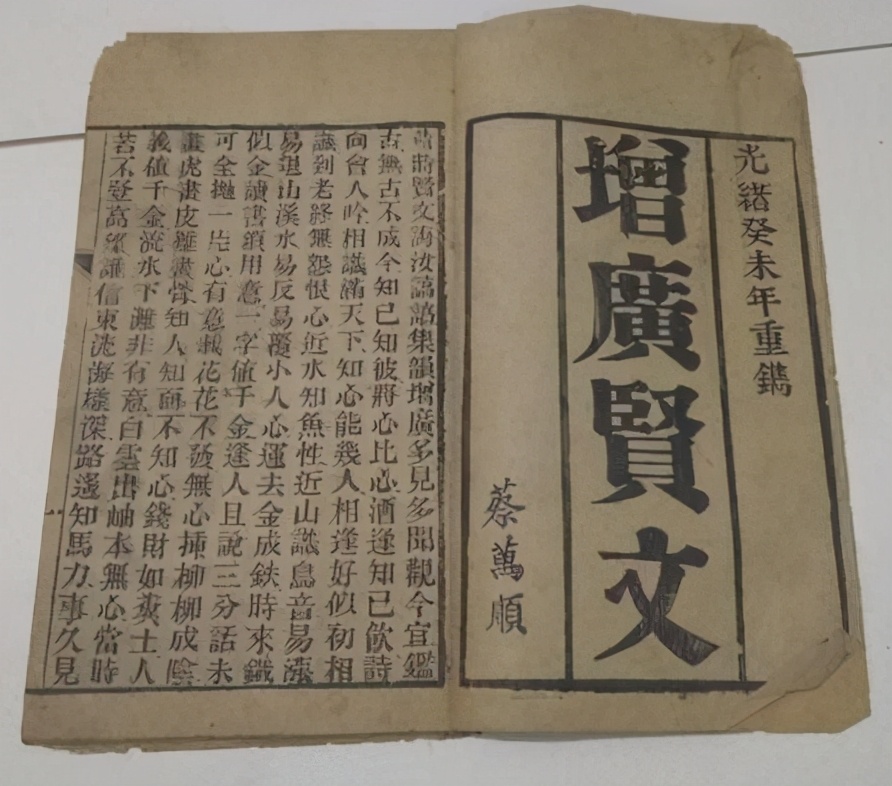 光緒癸未年重鐫
增廣賢文
蔡萬順
昔時賢文誨汝諄諄集韻增廣多見多聞觀今宜鑑
古無古不成今知己知彼將心比心酒逢知己飲詩
向會人吟相識滿天下知心能幾人相逢好似初相
識到老終無怨恨心近水知魚性近山識鳥音易漲
易退山溪水易反易覆小人心運去金成鉄時來鐵
似金讀書須用意一字值千金逢人且說三分話未
可全拋一片心有意栽花花不發無心插柳柳成陰
畫虎畫皮難畫骨知人知面不知心錢財如糞土人
義值千金流水下灘非有意白雲出岫本無心當時
若不登高望誰信東流海樣深路遙知馬力事久見